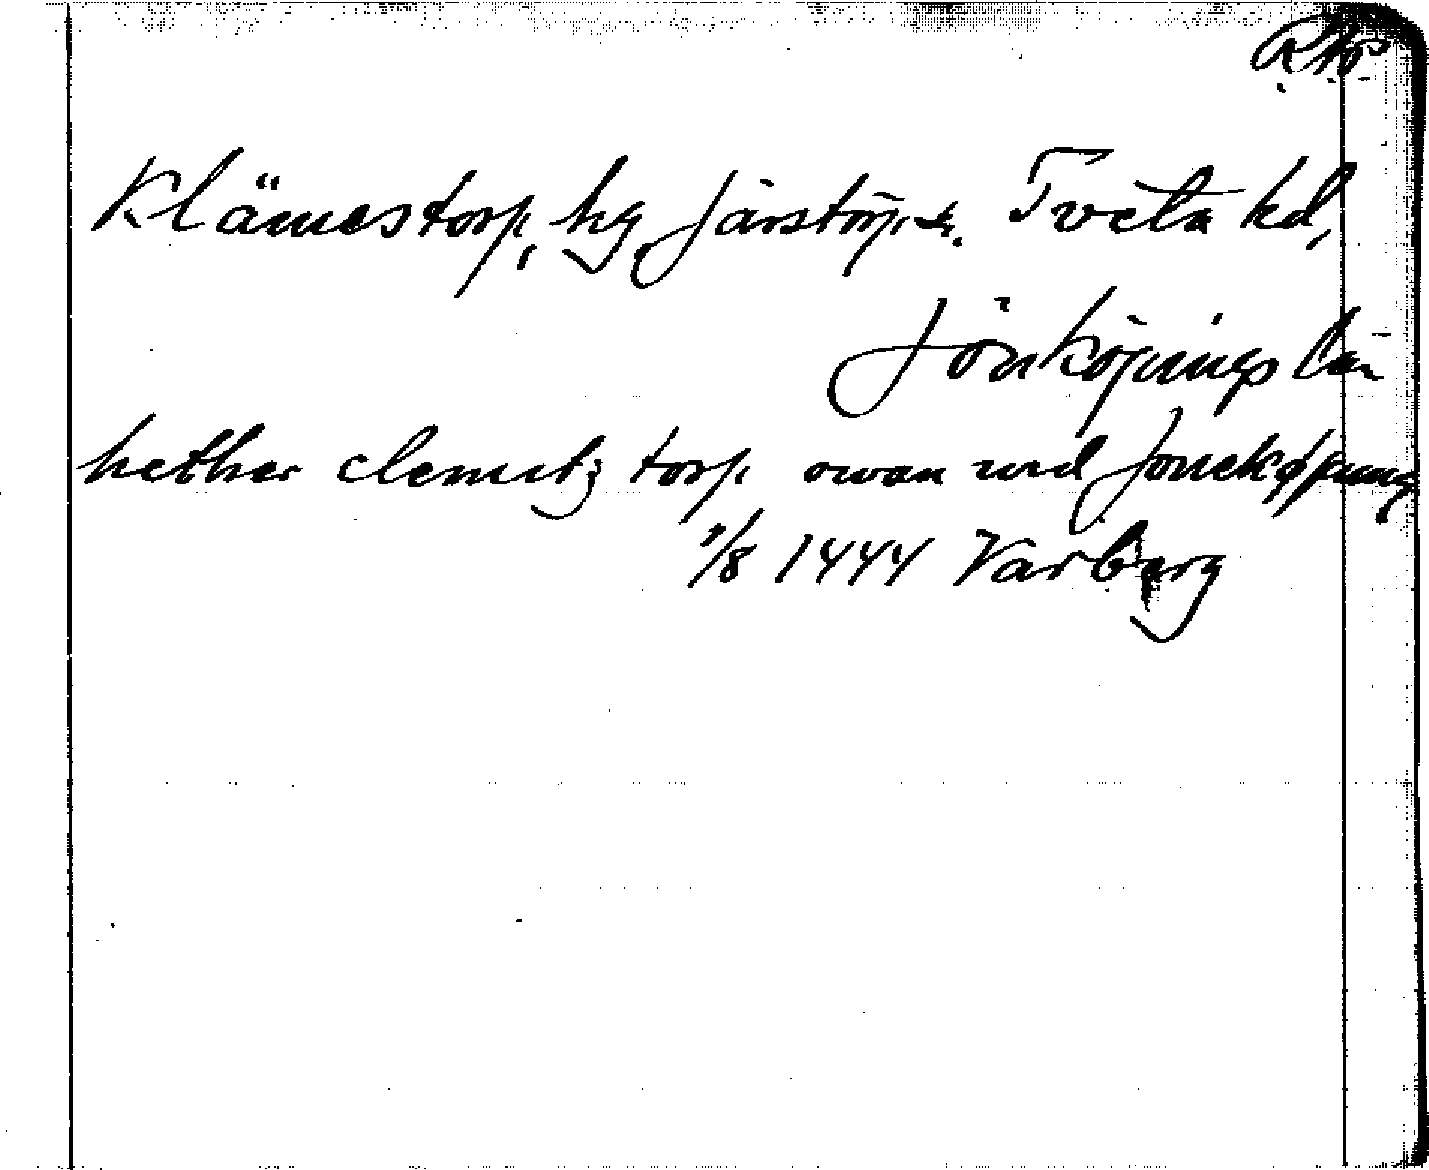 Klämestorp, hg Järstorp s. Tveta hd,
Jönköpings län
hether clemitz torp owan wid Joneköpung
1/8 1444 Varberg